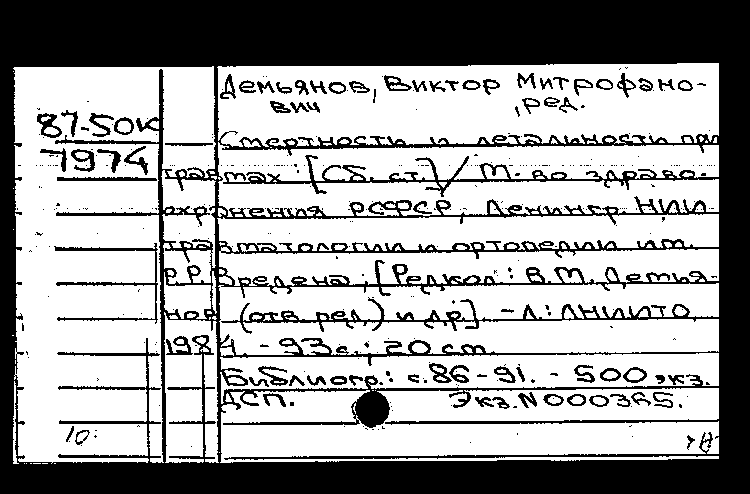 Демьянов, Виктор Митрофано-
вич, ред.
87-50к
7974
Смертности и летальности при
травмах : [Сб. ст.] / М-во здраво-
охранения РСФСР, Ленингр. НИИ
травматологии и ортопедии им.
Р.Р. Вредена ; [Редкол : В.М. Демья-
нов (отв. ред.) и др.]. - Л. : ЛНИИТО,
1984. - 93 с. ; 20 см.
Библиогр. : с. 86-91. - 500 экз.
ДСП. Экз. N 000365.
10.